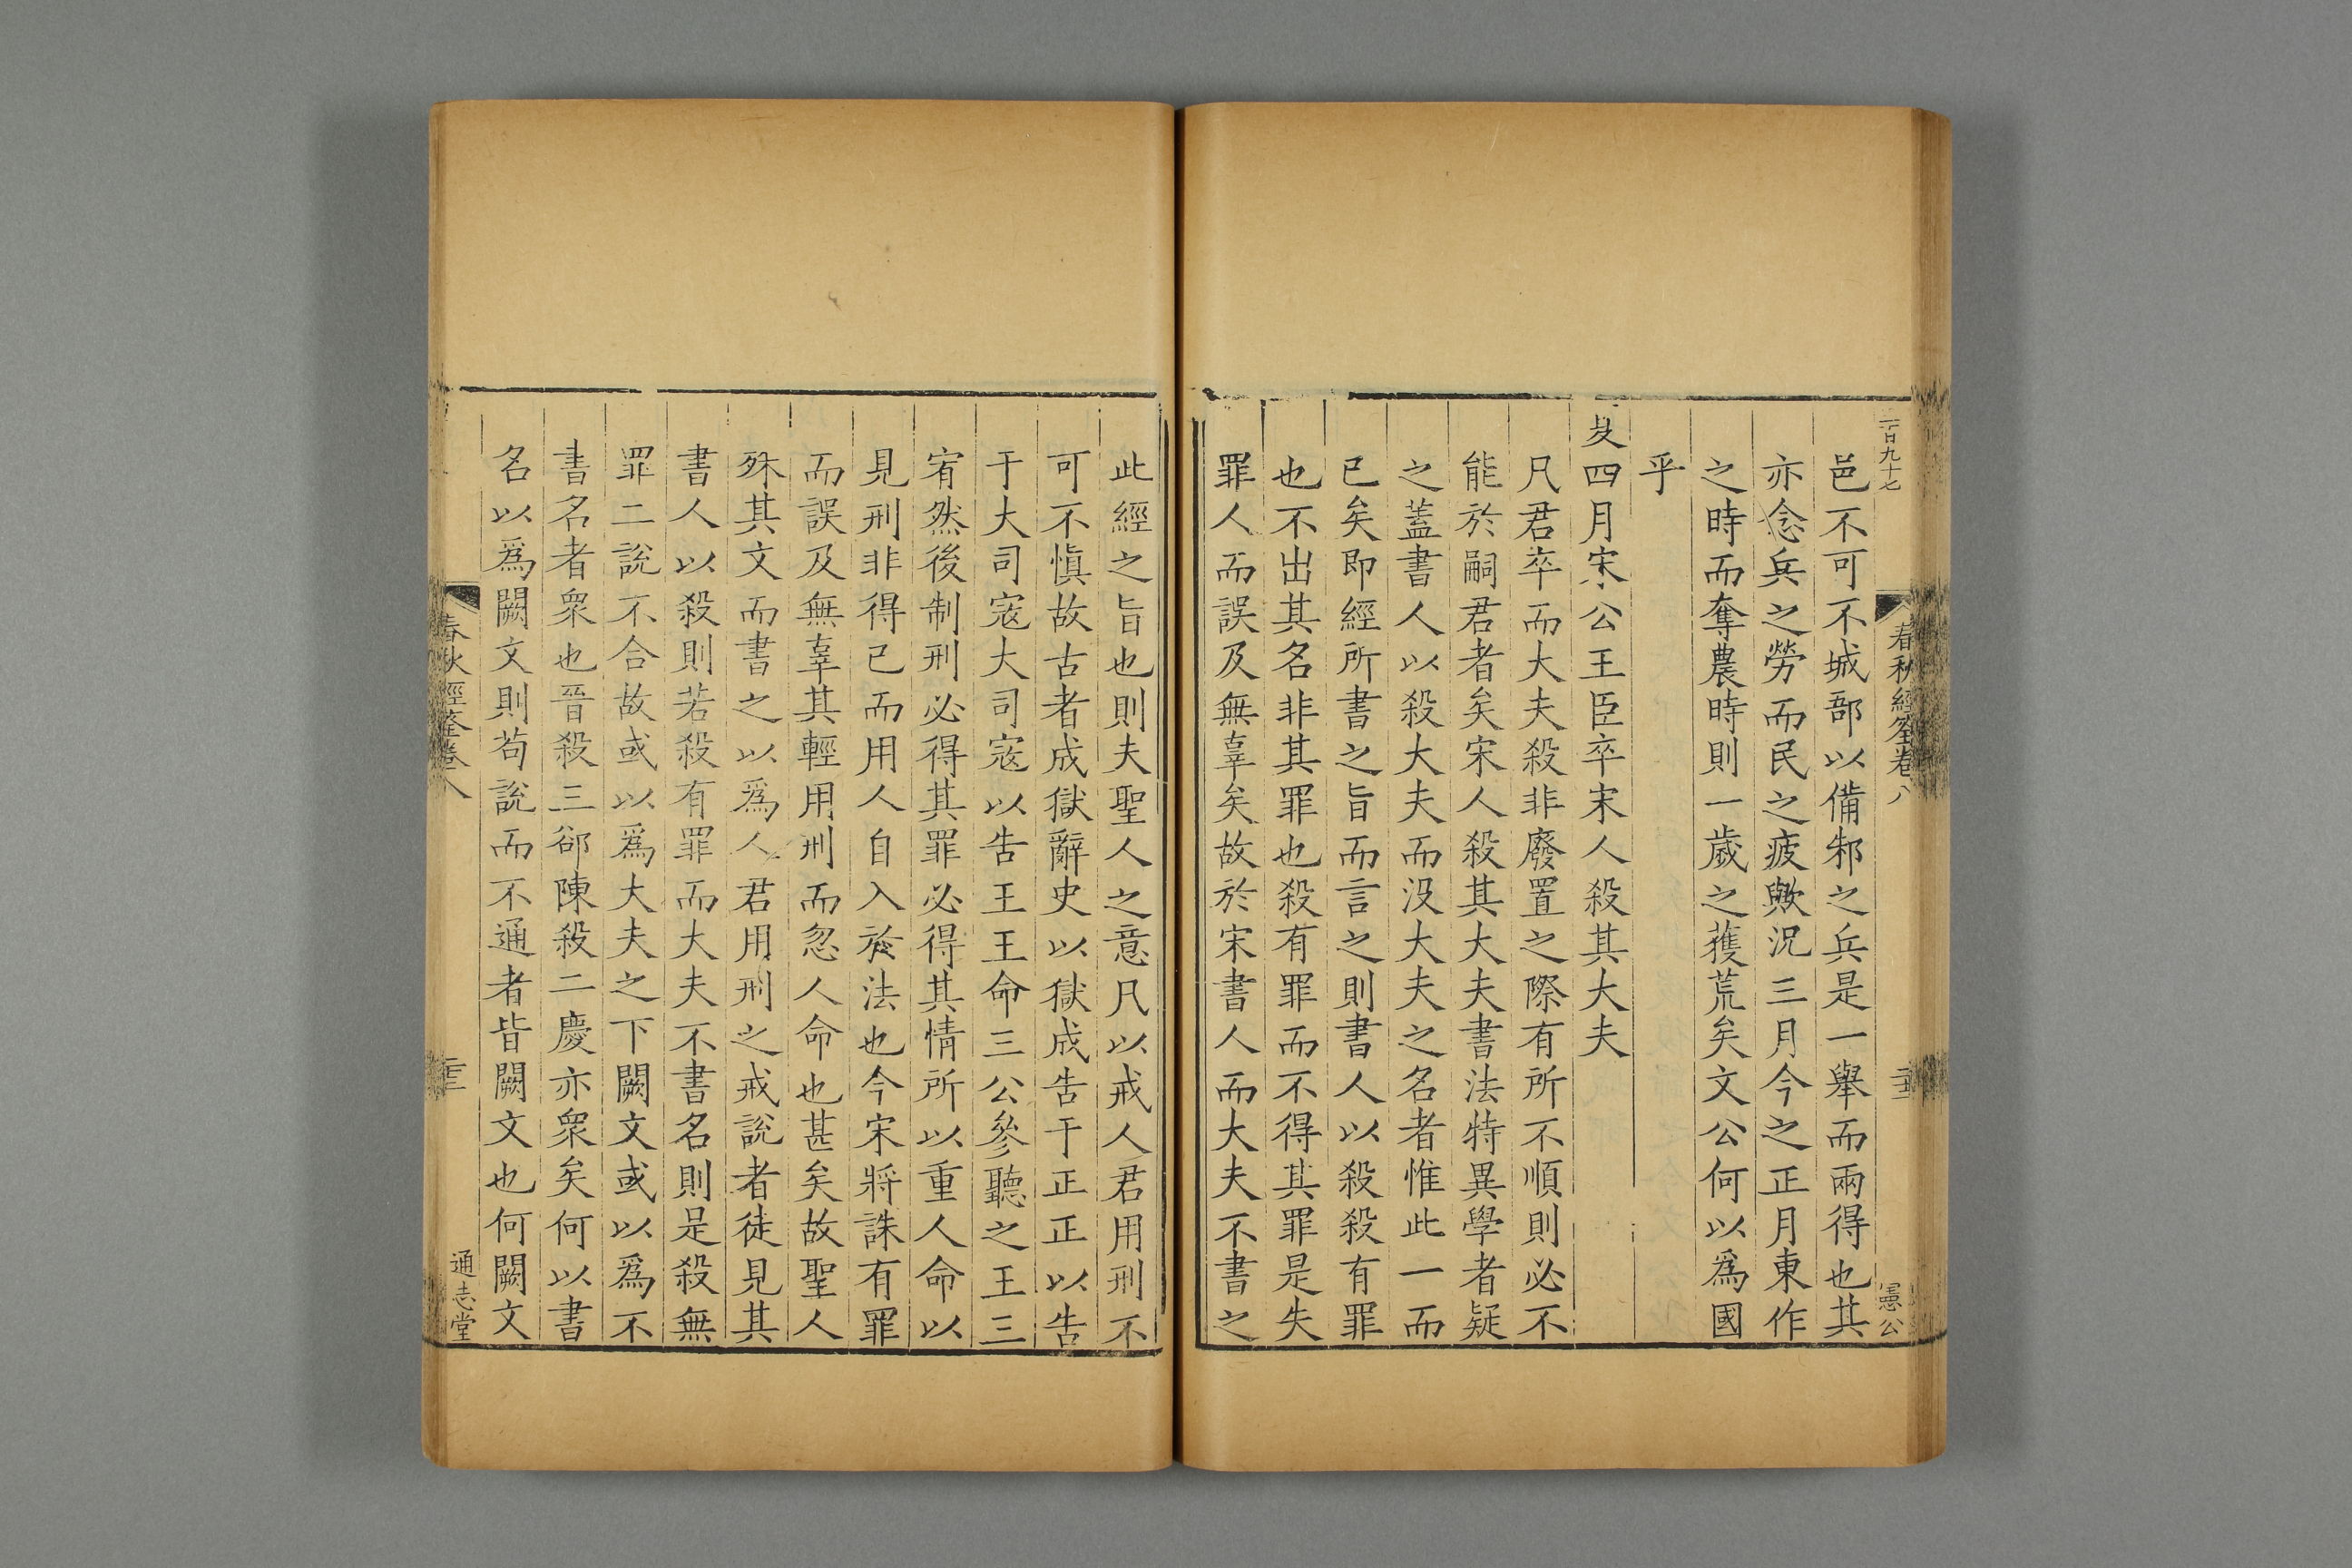 邑不可不城郚以備邾之兵是一舉而兩得也其
亦念兵之勞而民之疲歟況三月今之正月東作
之時而奪農時則一歲之蓫荒矣文公何以爲國
乎
夏四月宋公王臣卒宋人殺其大夫
凡君卒而大夫殺非廢置之際有所不順則必不
能於嗣君者矣宋人殺其大夫書法特異學者疑
之蓋書人以殺大夫而沒大夫之名者惟此一而
已矣即經所書之旨而言之則書人以殺殺有罪
也不出其名非其罪也殺有罪而不得其罪是失
罪人而誤及無辜矣故於宋書人而大夫不書之
春秋經筌卷八
憲公
此經之旨也則夫聖人之意凡以戒人君用刑不
可不慎故古者成獄辭史以獄成告于正正以告
于大司寇大司寇以告王王命三公參聽之王三
宥然後制刑必得其罪必得其情所以重人命以
見刑非得已而用人自入於法也今宋將誅有罪
而誤及無辜其輕用刑而忽人命也甚矣故聖人
殊其文而書之以爲人君用刑之戒說者徒見其
書人以殺則若殺有罪而大夫不書名則是殺無
罪二說不合故或以爲大夫之下闕文或以爲不
書名者衆也晉殺三郤陳殺二慶亦衆矣何以書
名以爲闕文則苟說而不通者皆闕文也何闕文
春秋經筌卷八
通志堂